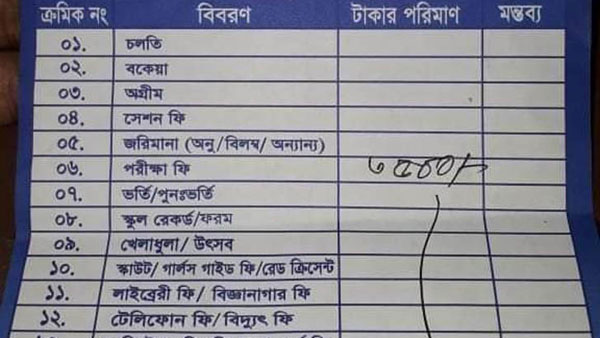 ক্রমিক নং বিবরণ টাকার পরিমাণ মন্তব্য
০১. চলতি
০২. বকেয়া
০৩. অগ্রীম
০৪. সেশন ফি
০৫. জরিমানা (অনু/বিলম্ব/ অন্যান্য)
০৬. পরীক্ষা ফি
০৭. ভর্তি/পুনঃভর্তি
০৮. স্কুল রেকর্ড/ফরম
০৯. খেলাধুলা/ উৎসব
১০. স্কাউট/ গার্লস গাইড ফি/রেড ক্রিসেন্ট
১১. লাইব্রেরী ফি/ বিজ্ঞানাগার ফি
১২. টেলিফোন ফি/ বিদ্যুৎ ফি